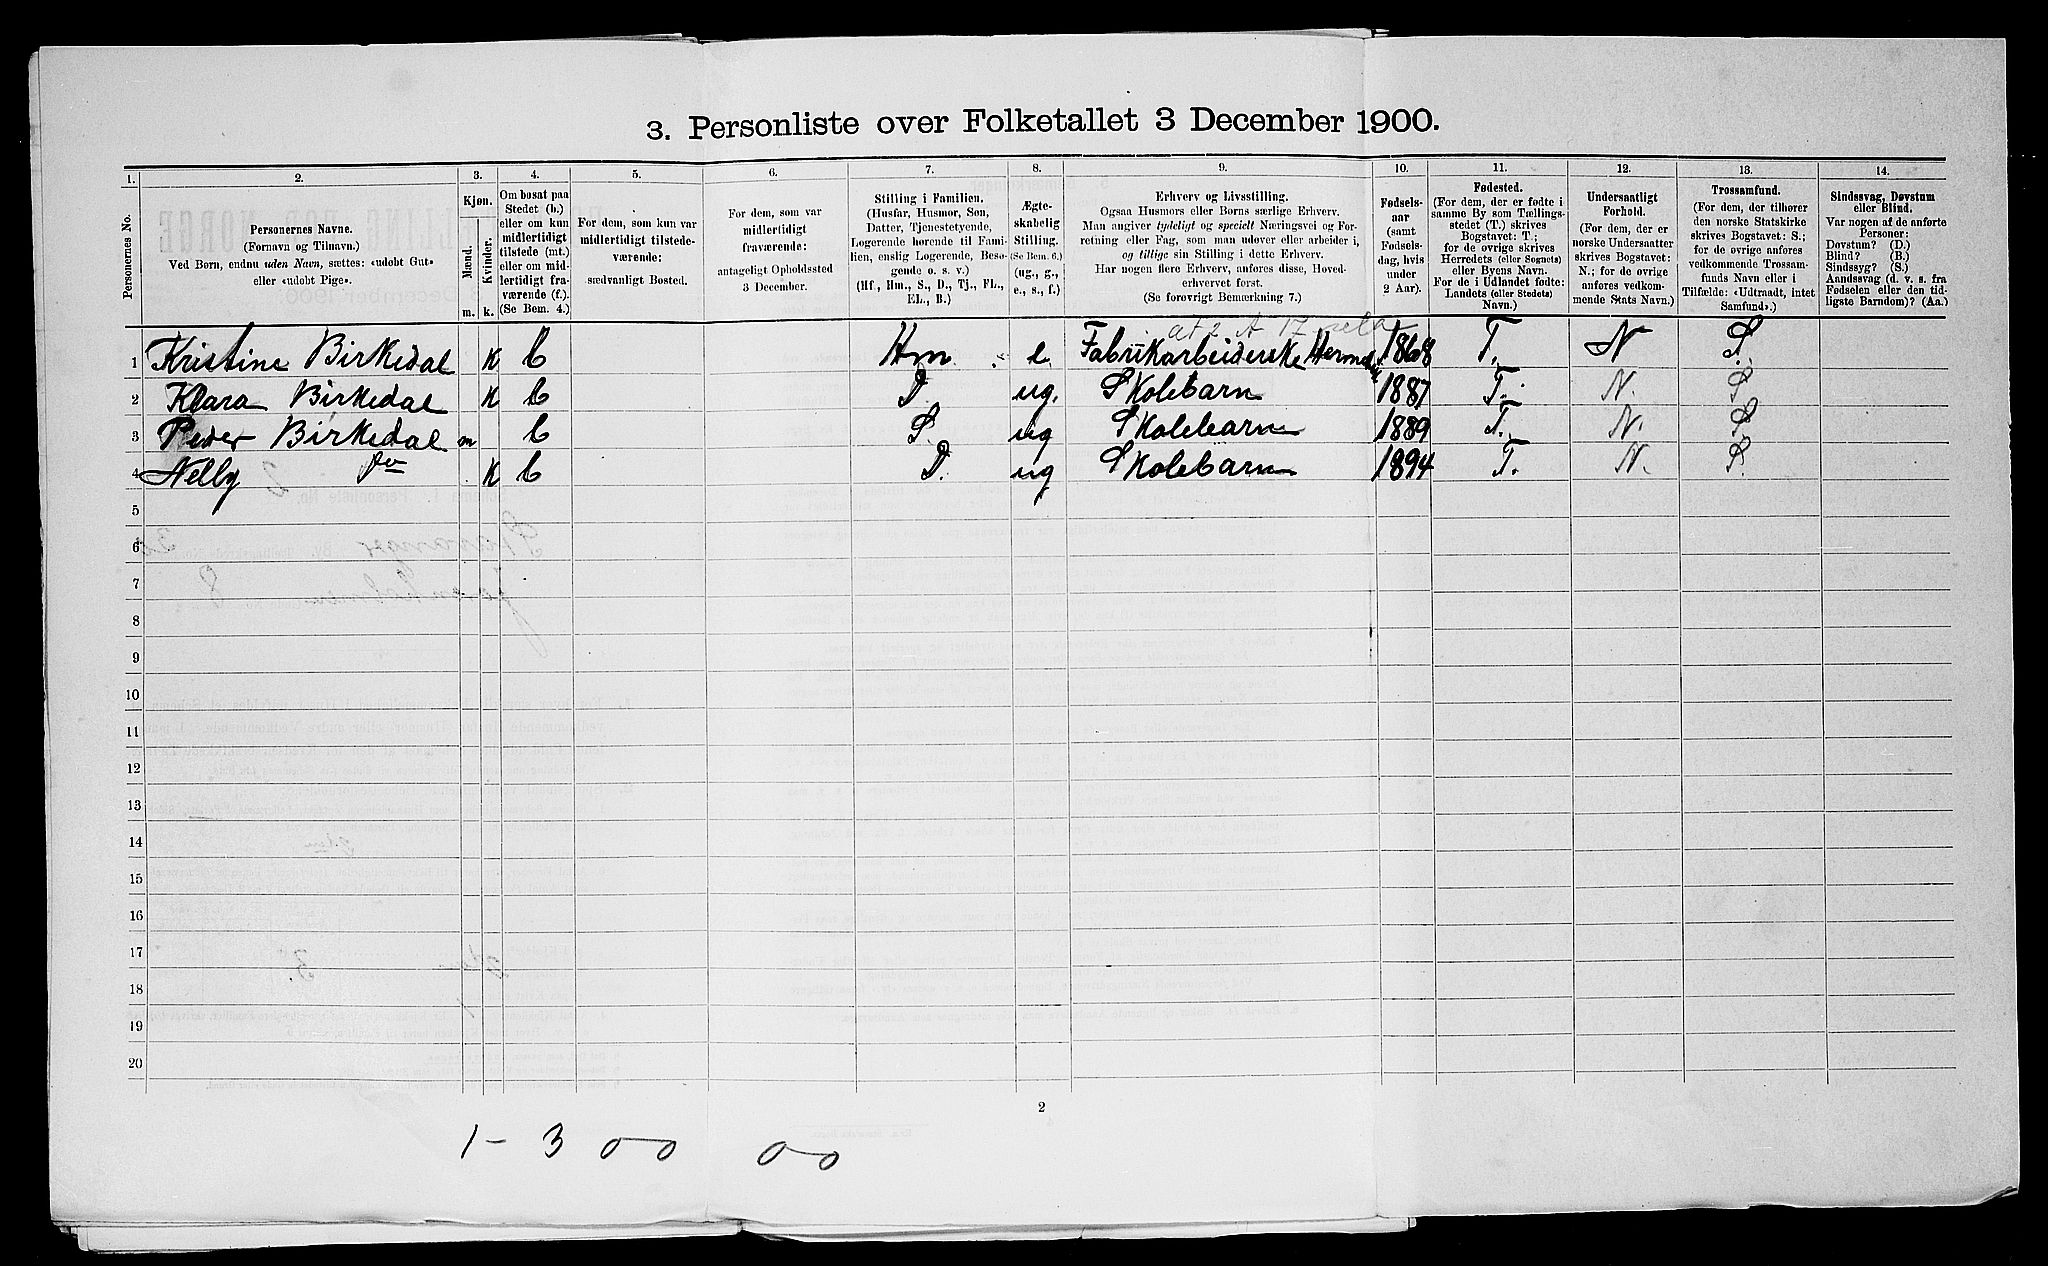 3. Personliste over Folketallet 3 December 1900.
1. 2. 3. 4. 5. 6. 7. 8. 9. 10. 11. 12. 13. 14.
Personernes No.
Personernes Navne.
(Fornavn og Tilnavn.)
Ved Børn, endnu uden Navn, sættes: «udøbt Gut»
eller «udøbt Pige».
Kjøn.
Mænd. Kvinder.
m. k.
Om bosat paa
Stedet (b.)
eller om kun
midlertidigt
tilstede (mt.)
eller om mid-
lertidigt fra-
værende (f.).
(Se Bem. 4.)
For dem, som kun var
midlertidigt tilstede-
værende:
sædvanligt Bosted.
For dem, som var
midlertidigt
fraværende:
antageligt Opholdssted
3 December.
Stilling i Familien.
(Husfar, Husmor, Søn,
Datter, Tjenestetyende,
Logerende hørende til Fami-
lien, enslig Logerende, Besø-
gende o. s. v.)
(Hf., Hm., S., D., Tj., FL.,
EL., B.)
Ægte-
skabelig
Stilling.
(Se Bem. 6.)
(ug., g.,
e., s., f.)
Erhverv og Livsstilling.
Ogsaa Husmors eller Børns særlige Erhverv.
Man angiver tydeligt og specielt Næringsvei og For-
retning eller Fag, som man udøver eller arbeider i,
og tillige sin Stilling i dette Erhverv.
Har nogen flere Erhverv, anføres disse, Hoved-
erhvervet først.
(Se forøvrigt Bemærkning 7.)
Fødsels-
aar
(samt
Fødsels-
dag, hvis
under
2 Aar).
Fødested.
(For dem, der er fødte i
samme By som Tællings-
stedet (T.) skrives
Bogstavet: T.;
for de øvrige skrives
Herredets (eller Sognets)
eller Byens Navn.
For de i Udlandet fødte:
Landets (eller Stedets)
Navn.)
Undersaatligt
Forhold.
(For dem, der er
norske Undersaatter
skrives Bogstavet:
N.; for de øvrige
anføres vedkom-
mende Stats Navn.)
Trossamfund.
(For dem, der tilhører
den norske Statskirke
skrives Bogstavet: S.;
for de øvrige anføres
vedkommende Trossam-
funds Navn eller i
Tilfælde: «Udtraadt, intet
Samfund».)
Sindssvag, Døvstum
eller Blind.
Var nogen af de anførte
Personer:
Døvstum? (D.)
Blind? (B.)
Sindssyg? (S.)
Aandssvag (d. v. s. fra
Fødselen eller den tid-
ligste Barndom)? (Aa.)
1 Kristine Birkedal k b Hm e Fabrikarbeiderske 1868 T. N S.
2 Klara Birkedal k b D. ug. Skolebarn 1887 T. N. S
3 Peder Birkedal m b S. ug Skolebarn 1889 T. N. S
4 Nelly Do k b D. ug Skolebarn 1894 T. N. S.
5
6
7
8
9
10
11
12
13
14
15
16
17
18
19
20
2
1 - 3 0 0 0 0